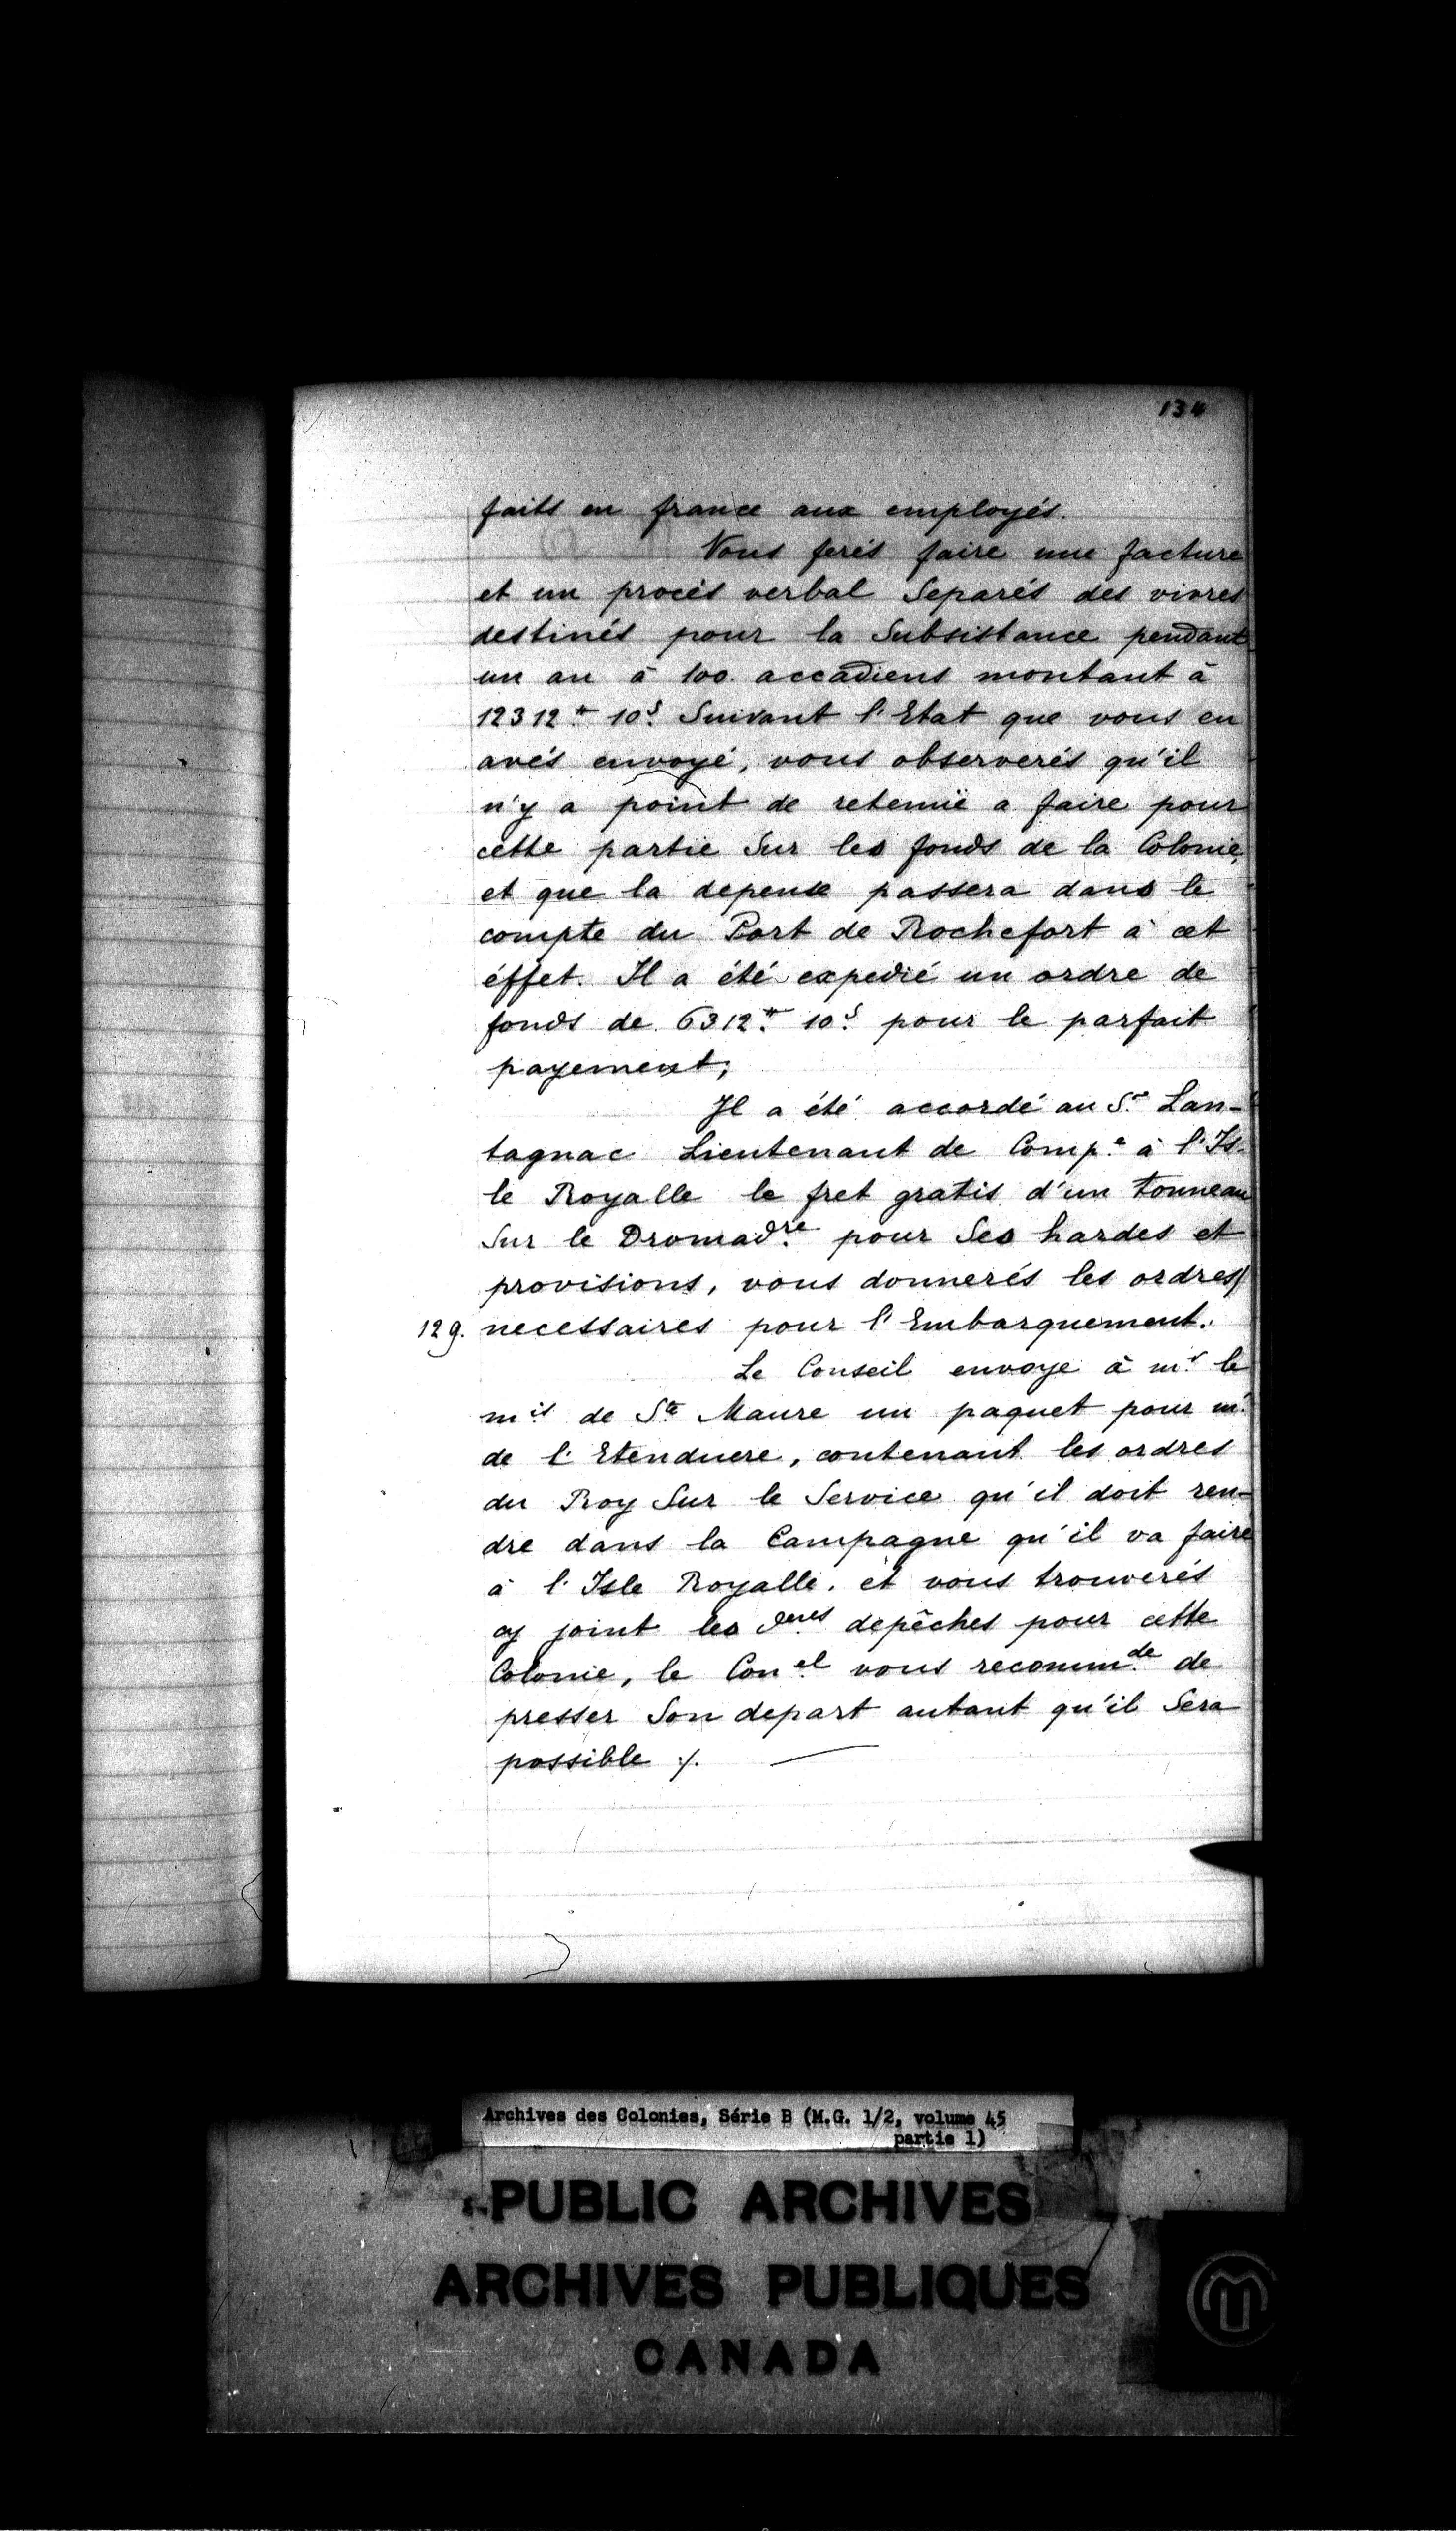 134
faits en france aux employés.
Vous ferés faire une facture
et un procés verbal Separés des vivres
destinés pour la Subsistance pendant
un an à 100. accadiens montant à
12312.# 10.s Suivant l'Etat que vous en
avés envoyé, vous observerés qu'il
n'y a point de retenüe a faire pour
cette partie Sur les fonds de la Colonie,
et que la depense passera dans le
compte du Port de Rochefort à cet
éffet. Il a été expedié un ordre de
fonds de 6312.# 10.s pour le parfait
payement;
Il a été accordé au S.r Lan-
tagnac Lieutenant de Comp.e à l'Is-
le Royalle le fret gratis d'un tonneau
Sur le Dromad.re pour Ses hardes et
provisions, vous donnerés les ordres/
129. necessaires pour l'Embarquement.
Le Conseil envoye à m.r le
m.is de Ste Maure un paquet pour m.r
de l'Etenduere, contenant les ordres
du Roy Sur le Service qu'il doit ren-
dre dans la Campagne qu'il va faire
à l'Isle Royalle. et vous trouverés
cy joint les d.eres depêches pour cette
Colonie, le Con.el vous recomm.de de
presser Son depart autant qu'il Sera
possible ./.
Archives des Colonies, Série B (M.G. 1/2, volume 45
partie 1)
PUBLIC ARCHIVES
ARCHIVES PUBLIQUES
CANADA